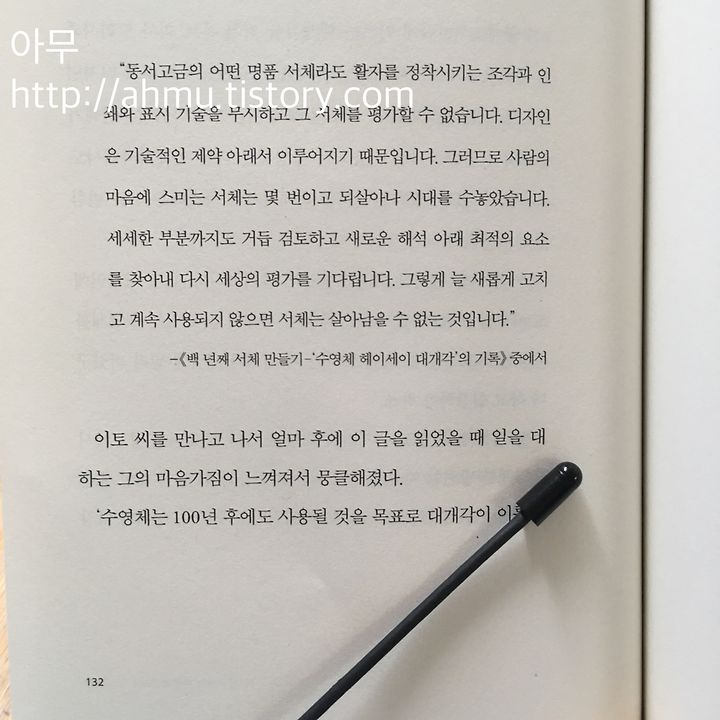 아무
http://ahmu.tistory.com
“동서고금의 어떤 명품 서체라도 활자를 정착시키는 조각과 인
쇄와 표시 기술을 무시하고 그 서체를 평가할 수 없습니다. 디자인
은 기술적인 제약 아래서 이루어지기 때문입니다. 그러므로 사람의
마음에 스미는 서체는 몇 번이고 되살아나 시대를 수놓았습니다.
세세한 부분까지도 거듭 검토하고 새로운 해석 아래 최적의 요소
를 찾아내 다시 세상의 평가를 기다립니다. 그렇게 늘 새롭게 고치
고 계속 사용되지 않으면 서체는 살아남을 수 없는 것입니다.”
-《백 년째 서체 만들기-‘수영체 헤이세이 대개각’의 기록》 중에서
이토 씨를 만나고 나서 얼마 후에 이 글을 읽었을 때 일을 대
하는 그의 마음가짐이 느껴져서 뭉클해졌다.
‘수영체는 100년 후에도 사용될 것을 목표로 대개각이
132